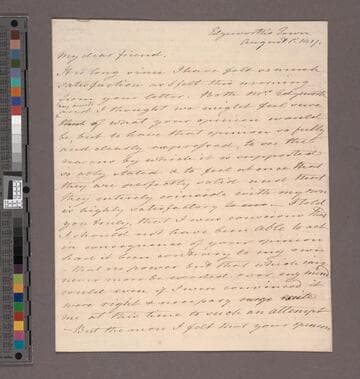 Edgeworths Town
August 1st 1819.
My dear friend.
It is long since I have felt so much
satisfaction as I felt this morning
from your letter. Both Mrs Edgeworth
my aunts
and I thought we might feel sure
of what your opinion would
be but to have that opinion so fully
and clearly expressed, to see the
reasons by which it is supported
so ably stated & to feel at once that
they are perfectly solid and that
they entirely coincide with my own
is highly satisfactory to me. I told
you truly that I was conscious that
I should not have been able to act
in consequence of your opinion
had it been contrary to my own
that no power but that which can
never more be exerted over my mind
could even if I were convinced it
were right & necessary
me at this time to such an attempt
- But the more I felt that your opinion